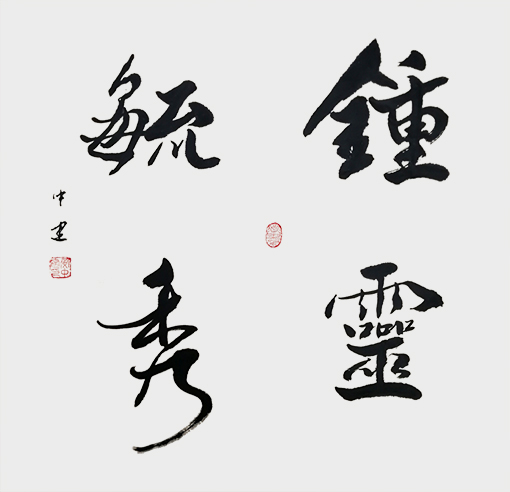 鍾靈
毓秀
中建